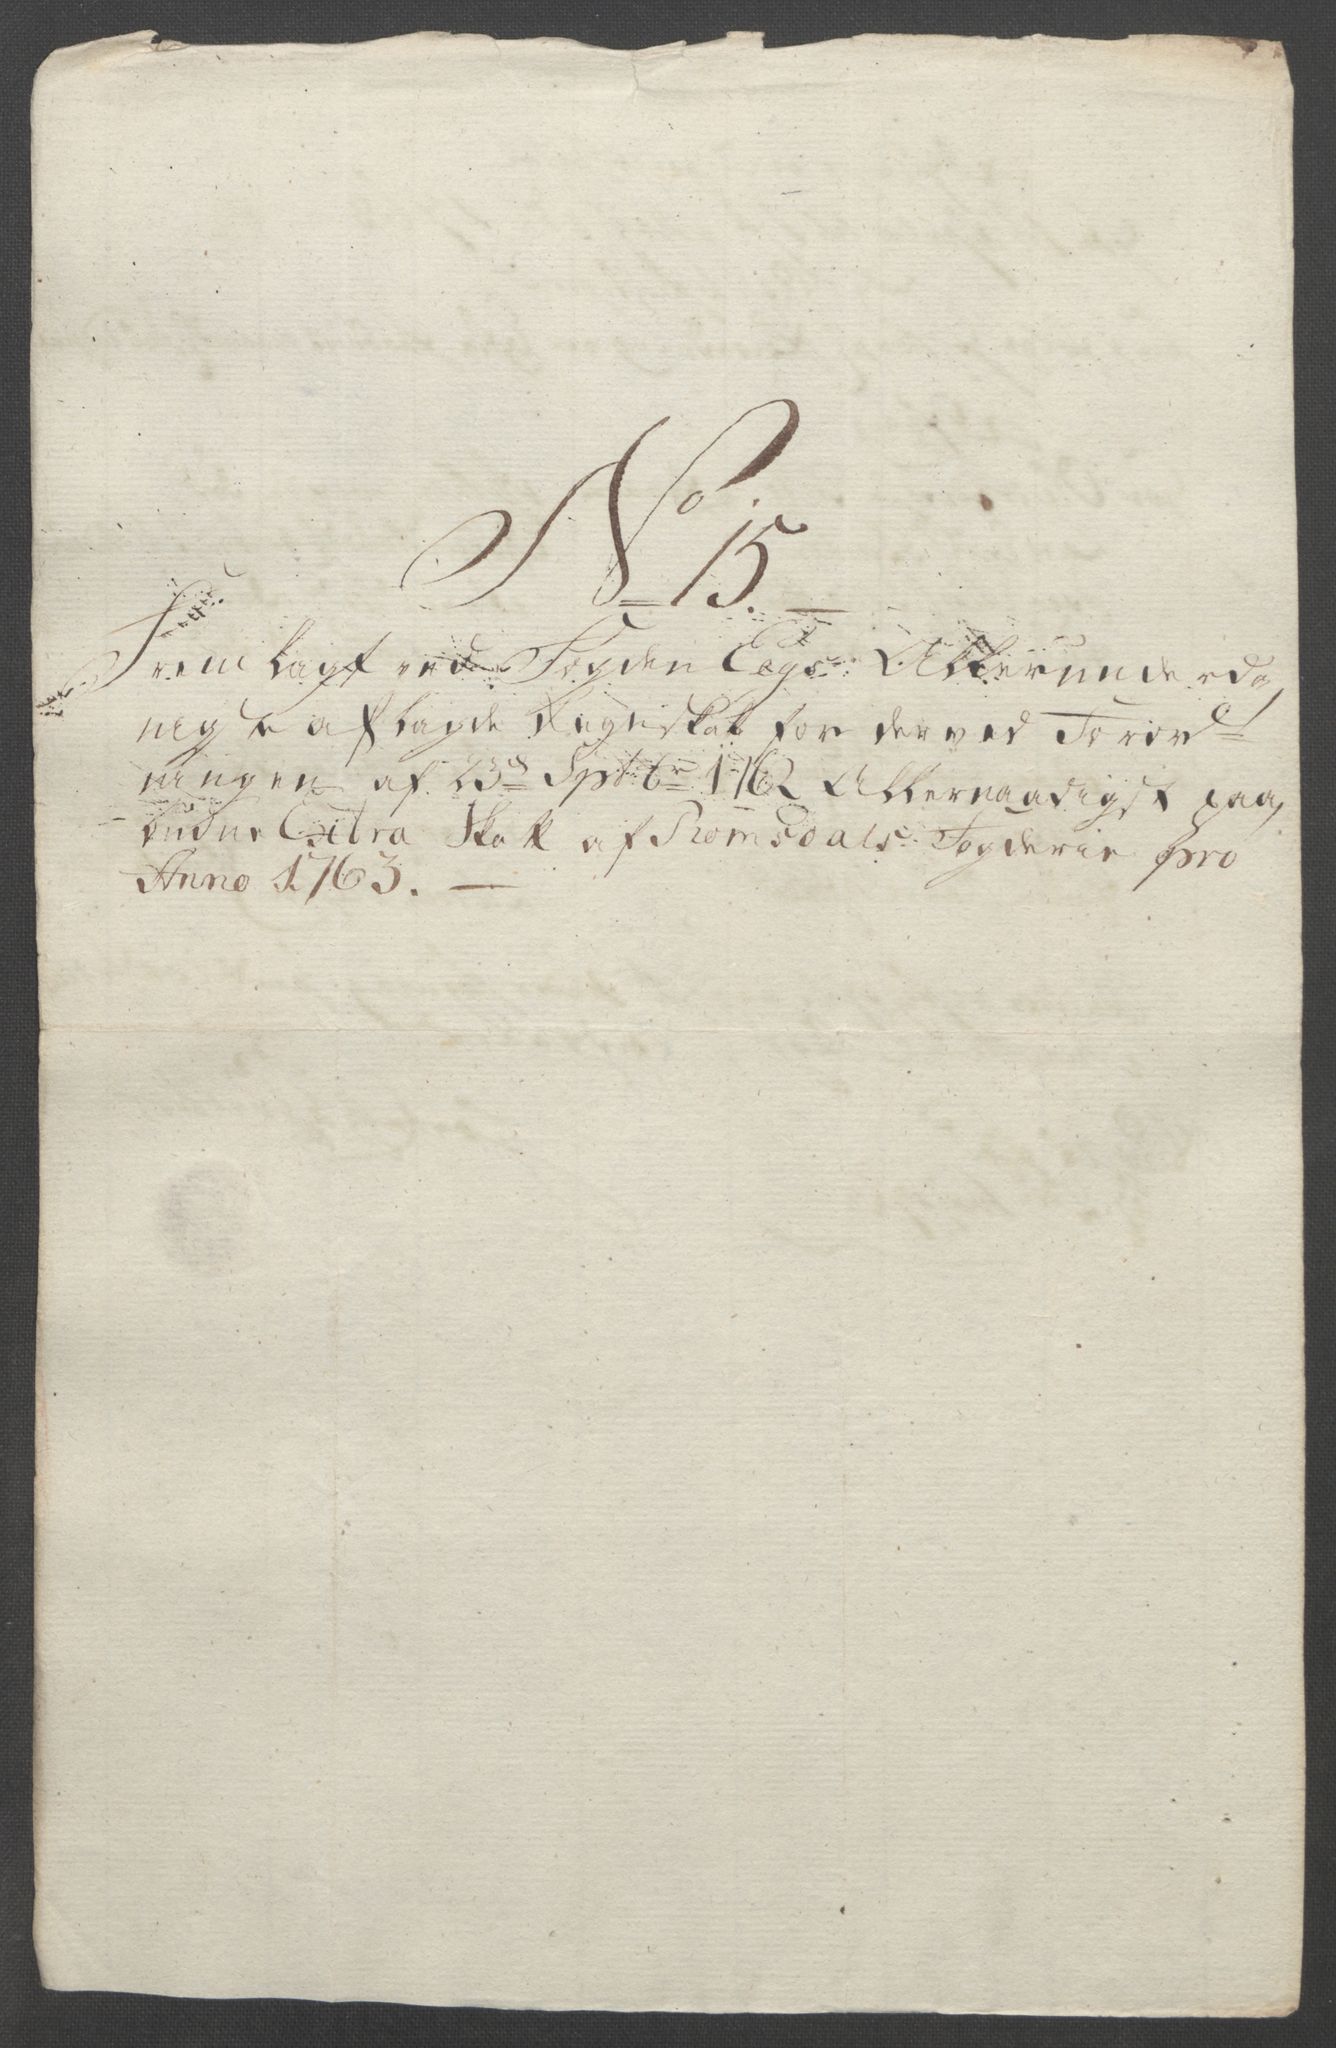 No 15.
Fremlagt ved Fogden Eegs Allerunderda
nigste aflagde Regnskab for den ved Forord
ningen af 23de Sptbr 1762 Allernaadigst paa
budne Extra Skatt af Romsdals Fogderie pro
Anno 1763.